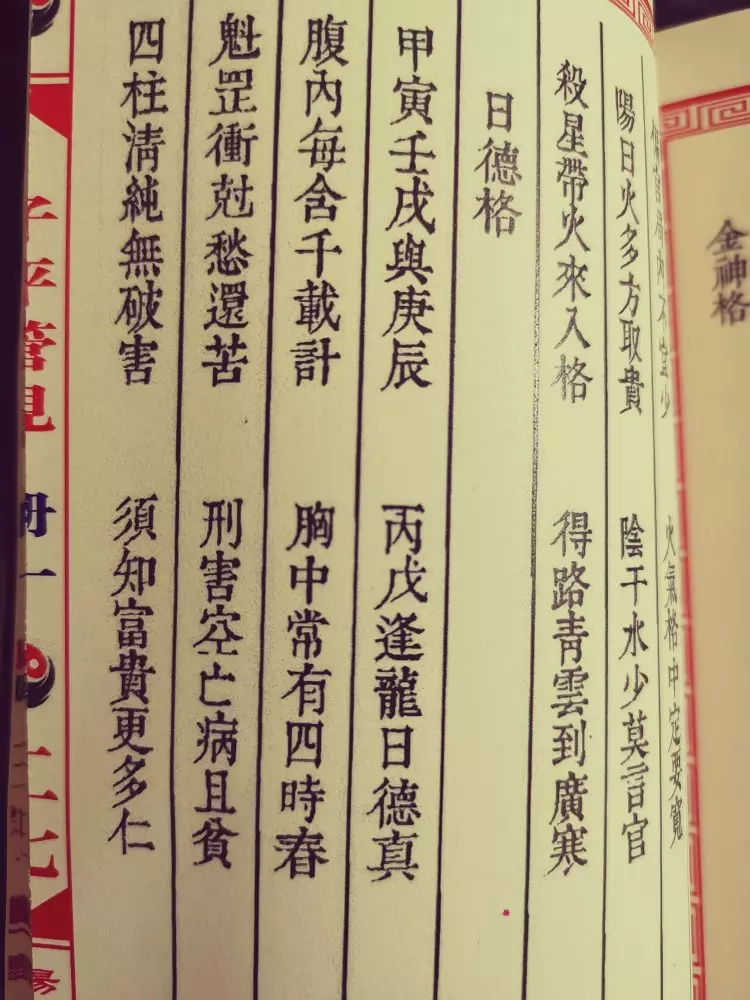 金神格
偏官局內不宜少 火氣格中定要寬
陽日火多方取貴 陰干水少莫言官
殺星帶火來入格 得路青雲到廣寒
日德格
甲寅壬戌與庚辰 丙戊逢龍日德真
腹內每含千載計 胸中常有四時春
魁罡衝尅愁還苦 刑害空亡病且貧
四柱清純無破害 須知富貴更多仁
子平管見 冊一
二七